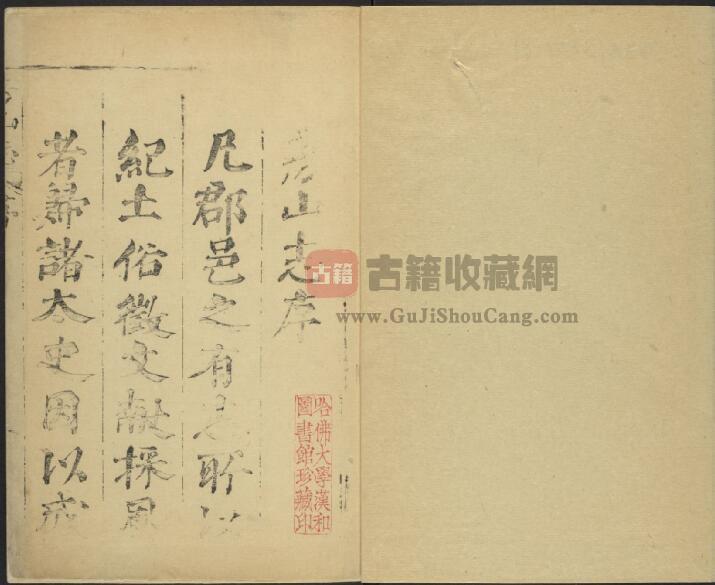 山志序
凡郡邑之有志所以
紀土俗徵文獻採風
者歸諸太史因以成
哈佛大學漢和
圖書館珍藏印
古籍
古籍收藏網
www.GuJiShouCang.com